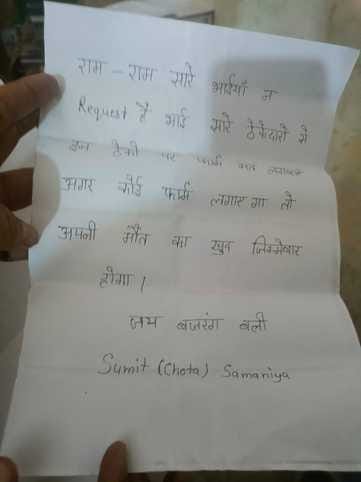 राम - राम सारे भाईयाँ न
Request है भाई सारे ठेकेदारों से
इन ठेकों पर फार्म
अगर कोई फार्म लगाए गा तो
अपनी मौत का खुद जिम्मेवार
होगा ।
जय बजरंग बली
Sumit (Chota) Samaniya